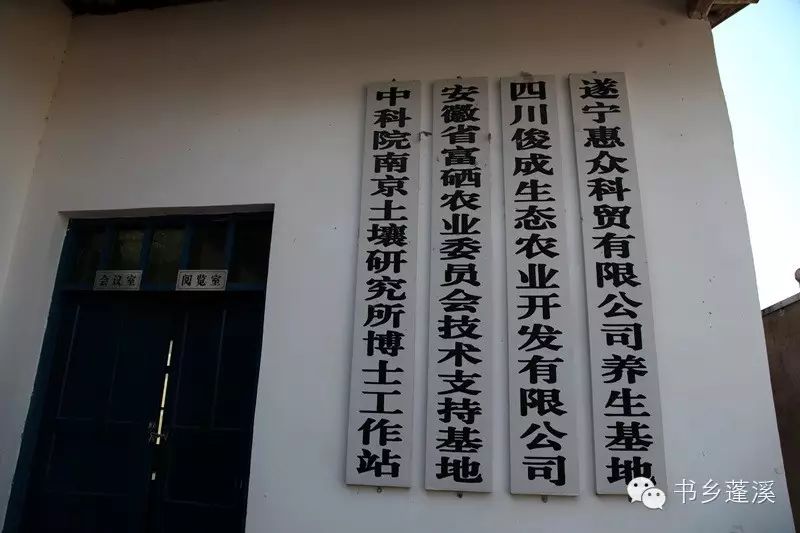 中科院南京土壤研究所博士工作站
安徽省富硒农业委员会技术支持基地
四川俊成生态农业开发有限公司
遂宁惠众科贸有限公司养生基地
会议室
阅览室
书乡蓬溪